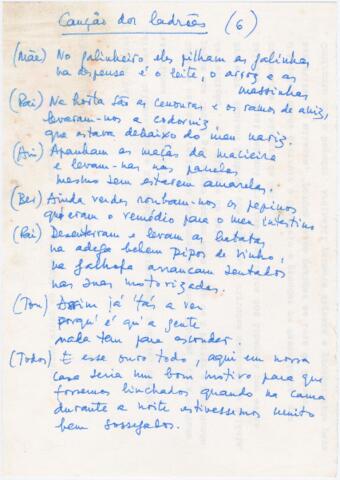 Canção dos ladrões (6)
(Mãe) No galinheiro eles pilham as galinhas
na despensa é o leite, o arroz e as
massinhas
(Pai) Na horta são as cenouras e os ramos de aniz,
levaram-nos a codorniz,
que estava debaixo do meu nariz.
(Avó) Apanham as maçãs da macieira
e levam-nas nas panelas
mesmo sem estarem amarelas.
(Ber) Ainda verdes roubam-nos os pepinos
que eram o remédio para o meu intestino
(Pai) Desenterram e levam as batatas
na adega bebem pipos de vinho,
na garrafa arrancam sentados
nas suas motorizadas.
(Ton) Assim já 'tás a ver
porqu'é qu'a gente
nada tem para esconder.
(Todos) E esse ouro todo, aqui em nossa
casa seria um bom motivo para que
fossemos linchados quando na cama
durante a noite estivessemos muito
bem sossegados.